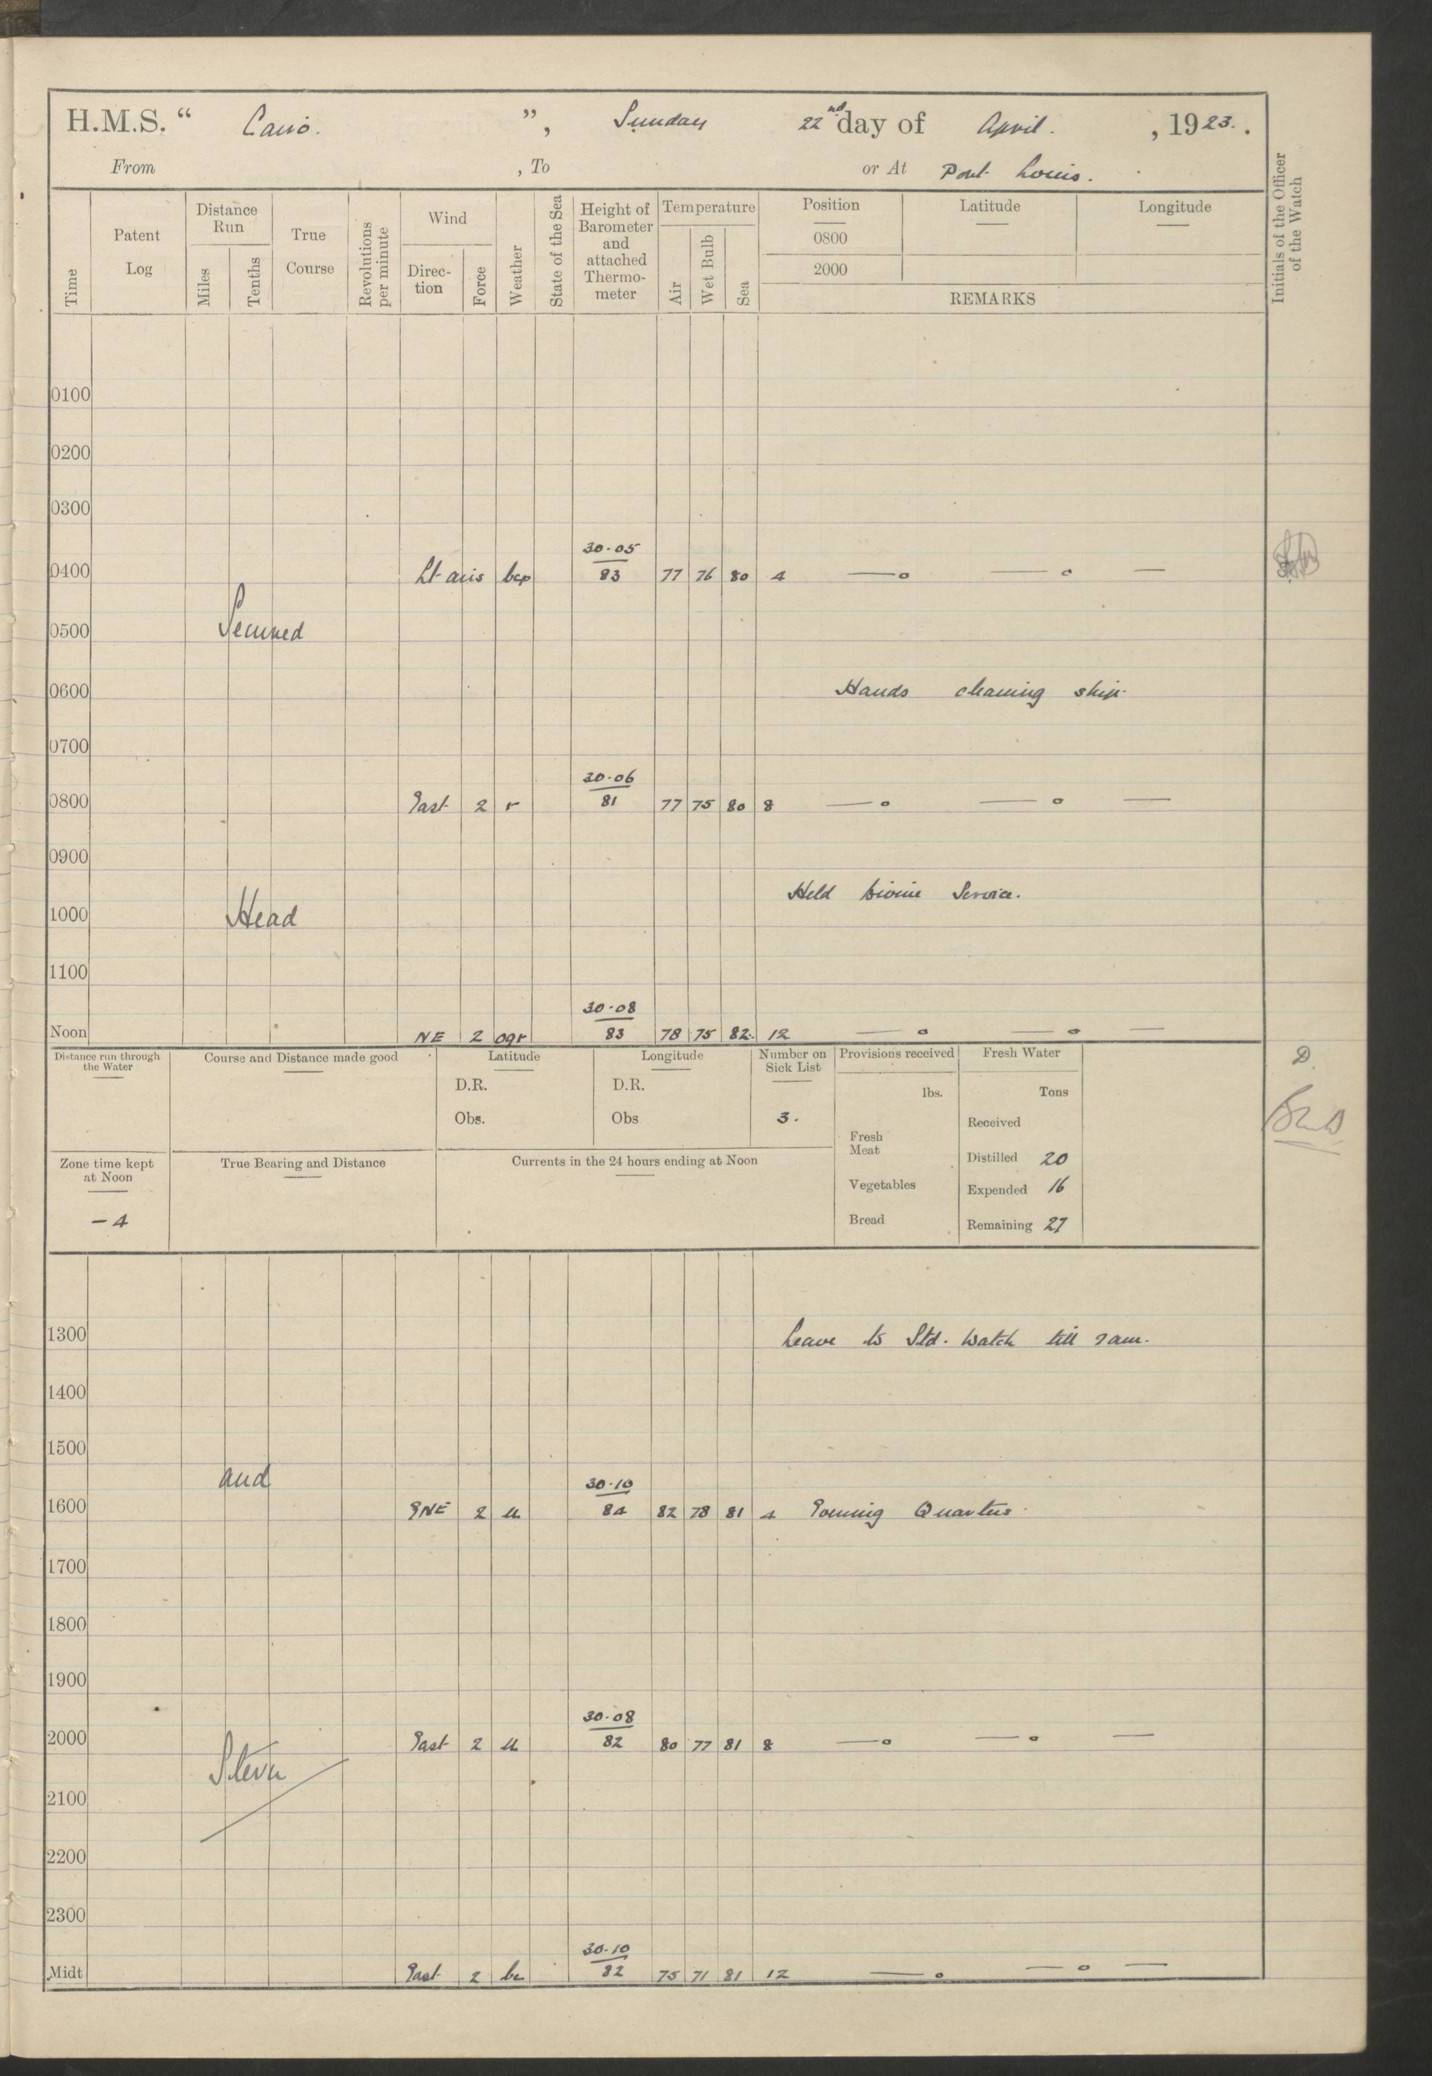 H.M.S. “ Cairo. ”, Sunday 22nd day of April. , 1923. .
From , To or At Port Louis.
Time
Patent Log
Distance Run
Miles
Tenths
True Course
Revolutions per minute
Wind
Direc-tion
Force
Weather
State of the Sea
Height of Barometer and attached Thermo-meter
Temperature
Air
Wet Bulb
Sea
Position
0800
2000
Latitude
Longitude
REMARKS
Initials of the Officer of the Watch
0100
0200
0300
30.05
0400 Lt airs bcp 83 77 76 80 4 — o — o —
0500 Secured
0600 Hands cleaning ship.
0700
30.06
0800 East 2 r 81 77 75 80 8 — o — o —
0900
Held Divine Service.
1000 Head
1100
30.08
Noon NE 2 ogr 83 78 75 82. 12 — o — o —
Distance run through the Water
Course and Distance made good
Latitude
D.R.
Obs.
Longitude
D.R.
Obs
Number on Sick List
3.
Provisions received
lbs.
Fresh Meat
Vegetables
Bread
Fresh Water
Tons
Received
Distilled 20
Expended 16
Remaining 27
D.
Zone time kept at Noon
- 4
True Bearing and Distance
Currents in the 24 hours ending at Noon
1300 Leave to Std. Watch till 7am.
1400
1500 and
30.10
1600 ENE 2 84 82 78 81 4 Evening Quarters.
1700
1800
1900
30.08
2000 East 2 82 80 77 81 8 — o — o —
Stern
2100
2200
2300
30.10
Midt East 2 bc 82 75 71 81 12 — o — o —